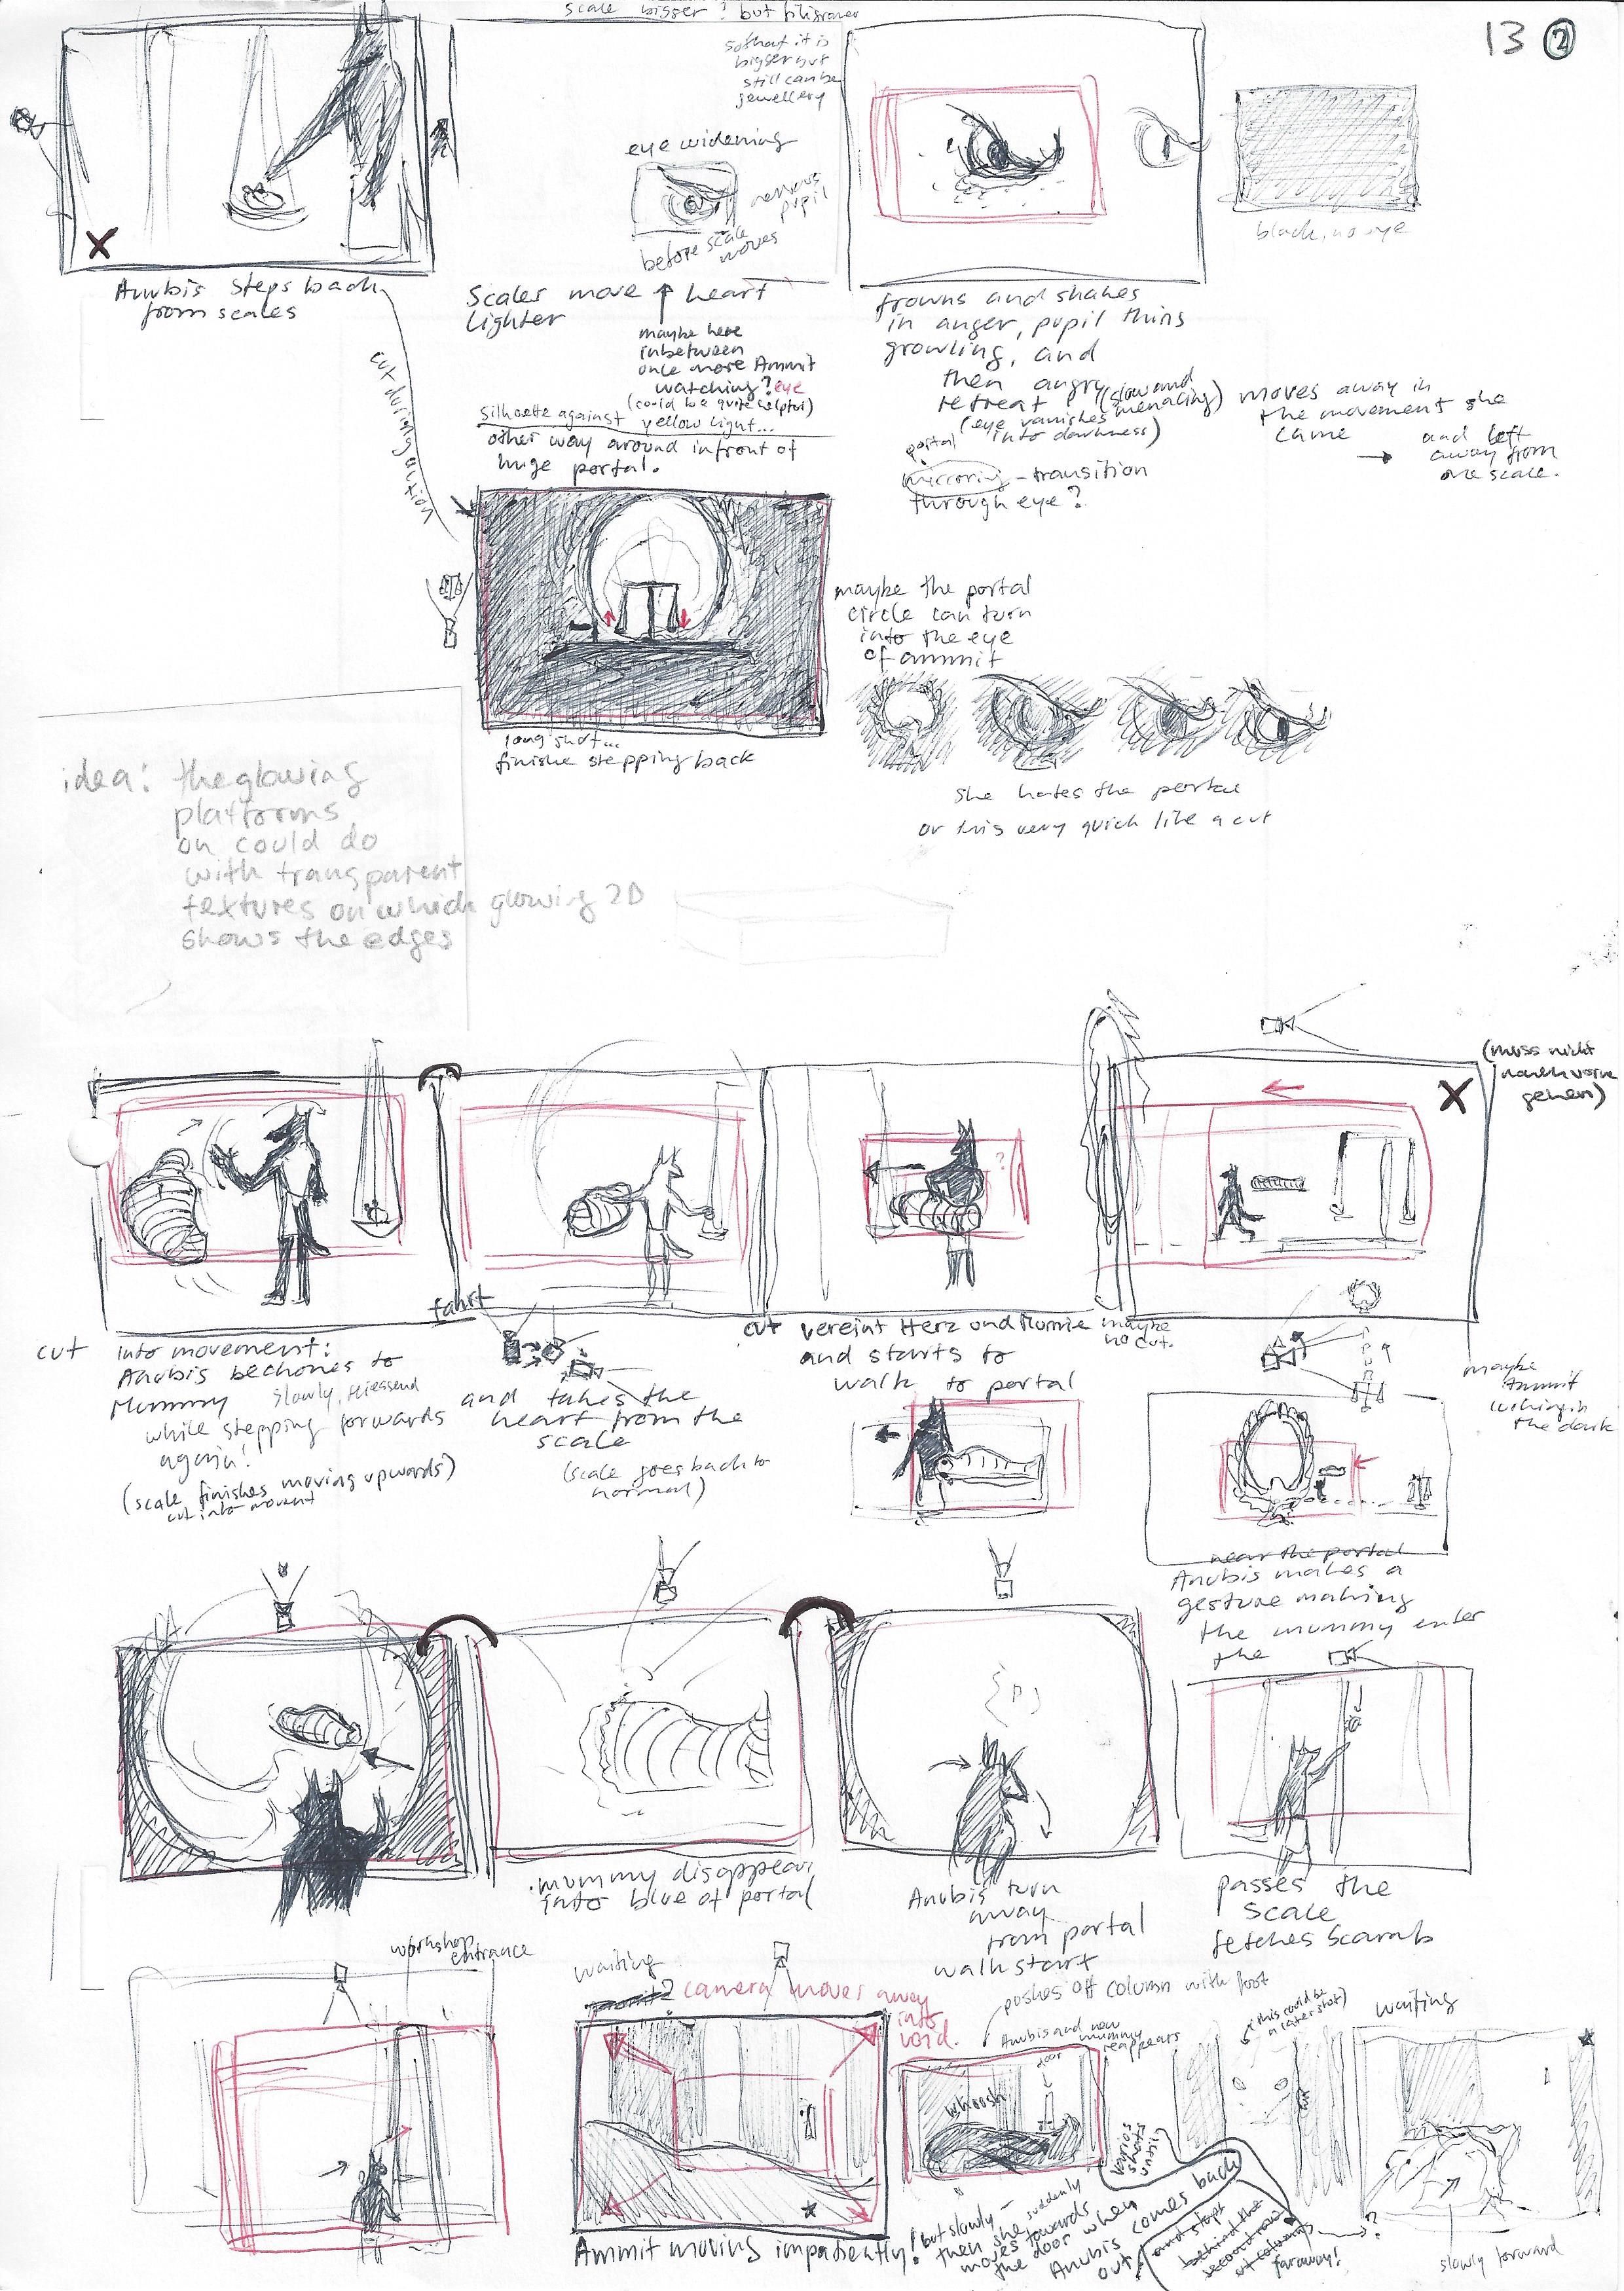 scale bigger? but filigraner
13 2
so that it is
bigger but
still can be
jewellery
eye widening
nervous
pupil
before scale
moves
black, no eye
Anubis steps back
from scales
cut during action
Scales move ↑ heart
lighter
maybe here
inbetween
once more Ammit
watching? eye
(could be quite helpful)
silhouette against
yellow light...
other way around infront of
huge portal.
frowns and shakes
in anger, pupil thins
growling, and
then angry
retreat (slow and
menacing)
(eye vanishes
into darkness)
moves away in
the movement she
came
→ and left
away from
one scale.
portal
mirroring - transition
through eye?
maybe the portal
circle can turn
into the eye
of ammit
long shot...
finishe stepping back
she hates the portal
or this very quick like a cut
idea: the glowing
platforms
on could do
with transparent
textures on which glowing 2D
shows the edges
(muss nicht
nach vorne
gehen)
X
fahrt
cut into movement:
Anubis beckones to
Mummy slowly, fliessend
while stepping forwards
again!
(scale finishes moving upwards)
cut into movent
and takes the
heart from the
scale
(scale goes back to
normal)
cut vereint Herz und Mumie
and starts to
walk to portal
maybe
no cut.
maybe
Ammit
in
the dark
near the portal
Anubis makes a
gesture making
the mummy enter
the
mummy disappear
into blue of portal
Anubis turn
away
from portal
walk start
passes the
scale
fetches Scarab
workshop
entrance
waiting
camera moves away
into
void.
pushes off column with foot
Anubis and new
mummy
reappears
door
whoosh
(this could be
a later shot)
waiting
Ammit moving impatiently!
but slowly -
then she suddenly
moves towards
the door when
Anubis comes back
out
various
shots
until
and stops
behind the
second row
of columns
far away!
?
slowly forward